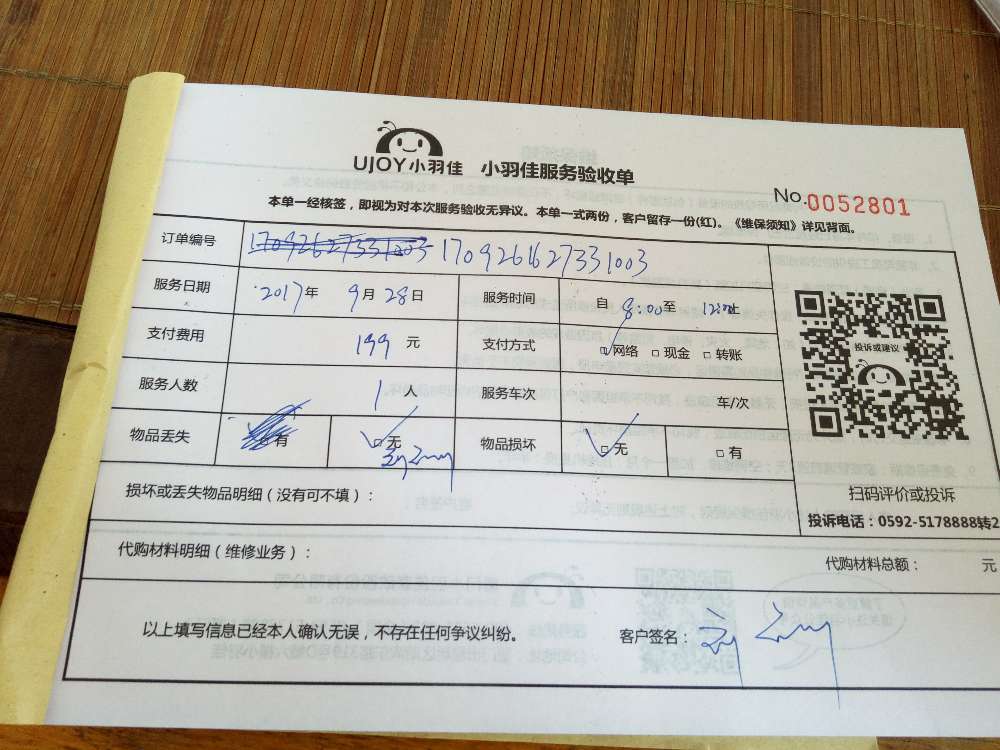 UJOY小羽佳 小羽佳服务验收单
No.0052801
本单一经核签，即视为对本次服务验收无异议。本单一式两份，客户留存一份(红)。《维保须知》详见背面。
订单编号 170926162733​1003
服务日期 2017年 9月28日 服务时间 自 8:00至 12:00止
支付费用 199 元 支付方式 □网络 □现金 □转账
服务人数 1人 服务车次 车/次
物品丢失 □有 □无 物品损坏 □无 □有
投诉或建议
扫码评价或投诉
损坏或丢失物品明细（没有可不填）：
投诉电话：0592-5178888转2
代购材料明细（维修业务）： 代购材料总额： 元
以上填写信息已经本人确认无误，不存在任何争议纠纷。 客户签名：